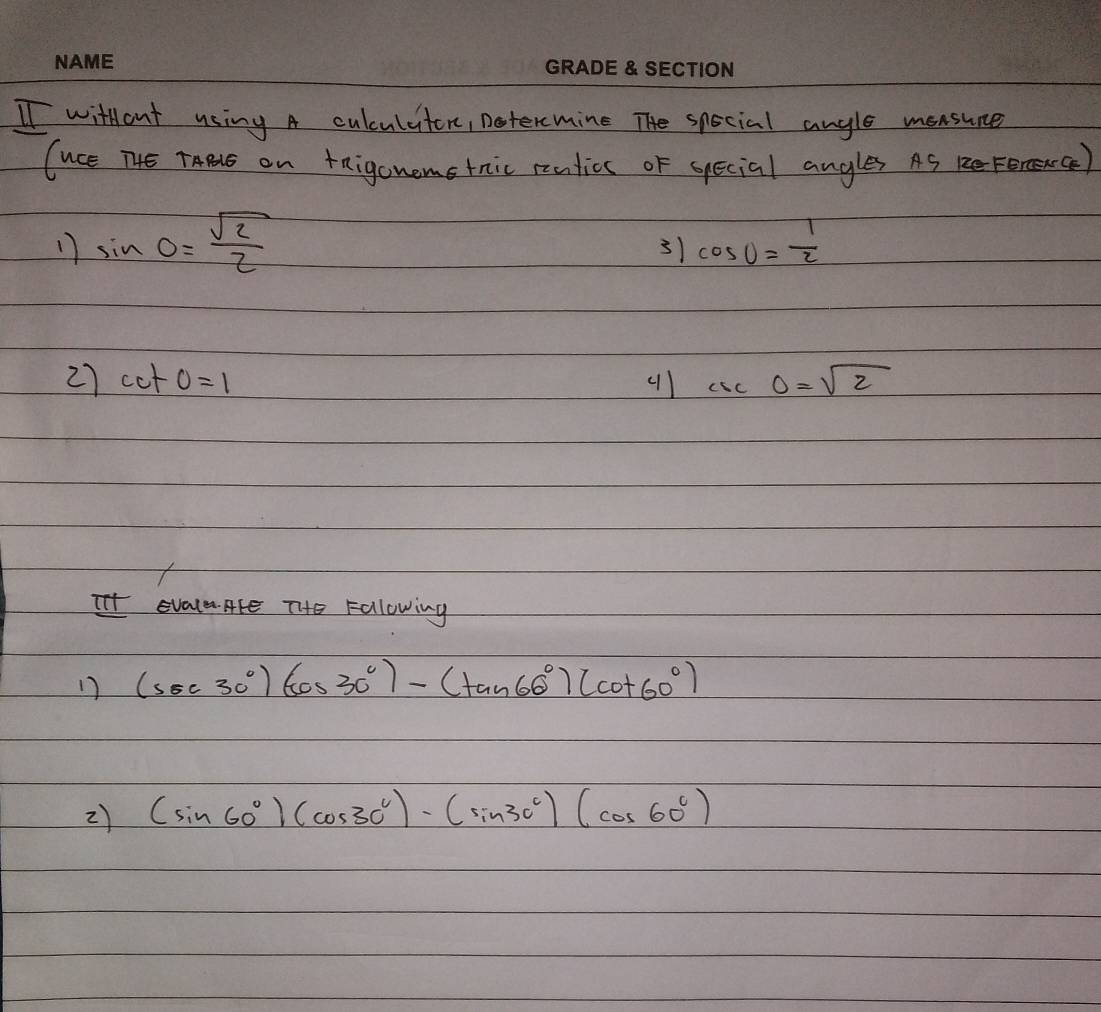 NAME GRADE & SECTION
II without using A calculator, Determine The special angle measure
(uce THE TABLE on trigonometric ratios OF special angles AS REFERENCE)
1) sin 0 = √2/2 3) cos 0 = 1/2
2) cot 0 = 1 4) csc 0 = √2
III Evaluate THE Following
1) (sec 30°) (cos 30°) - (tan 60°) (cot 60°)
2) (sin 60°) (cos 30°) - (sin 30°) (cos 60°)